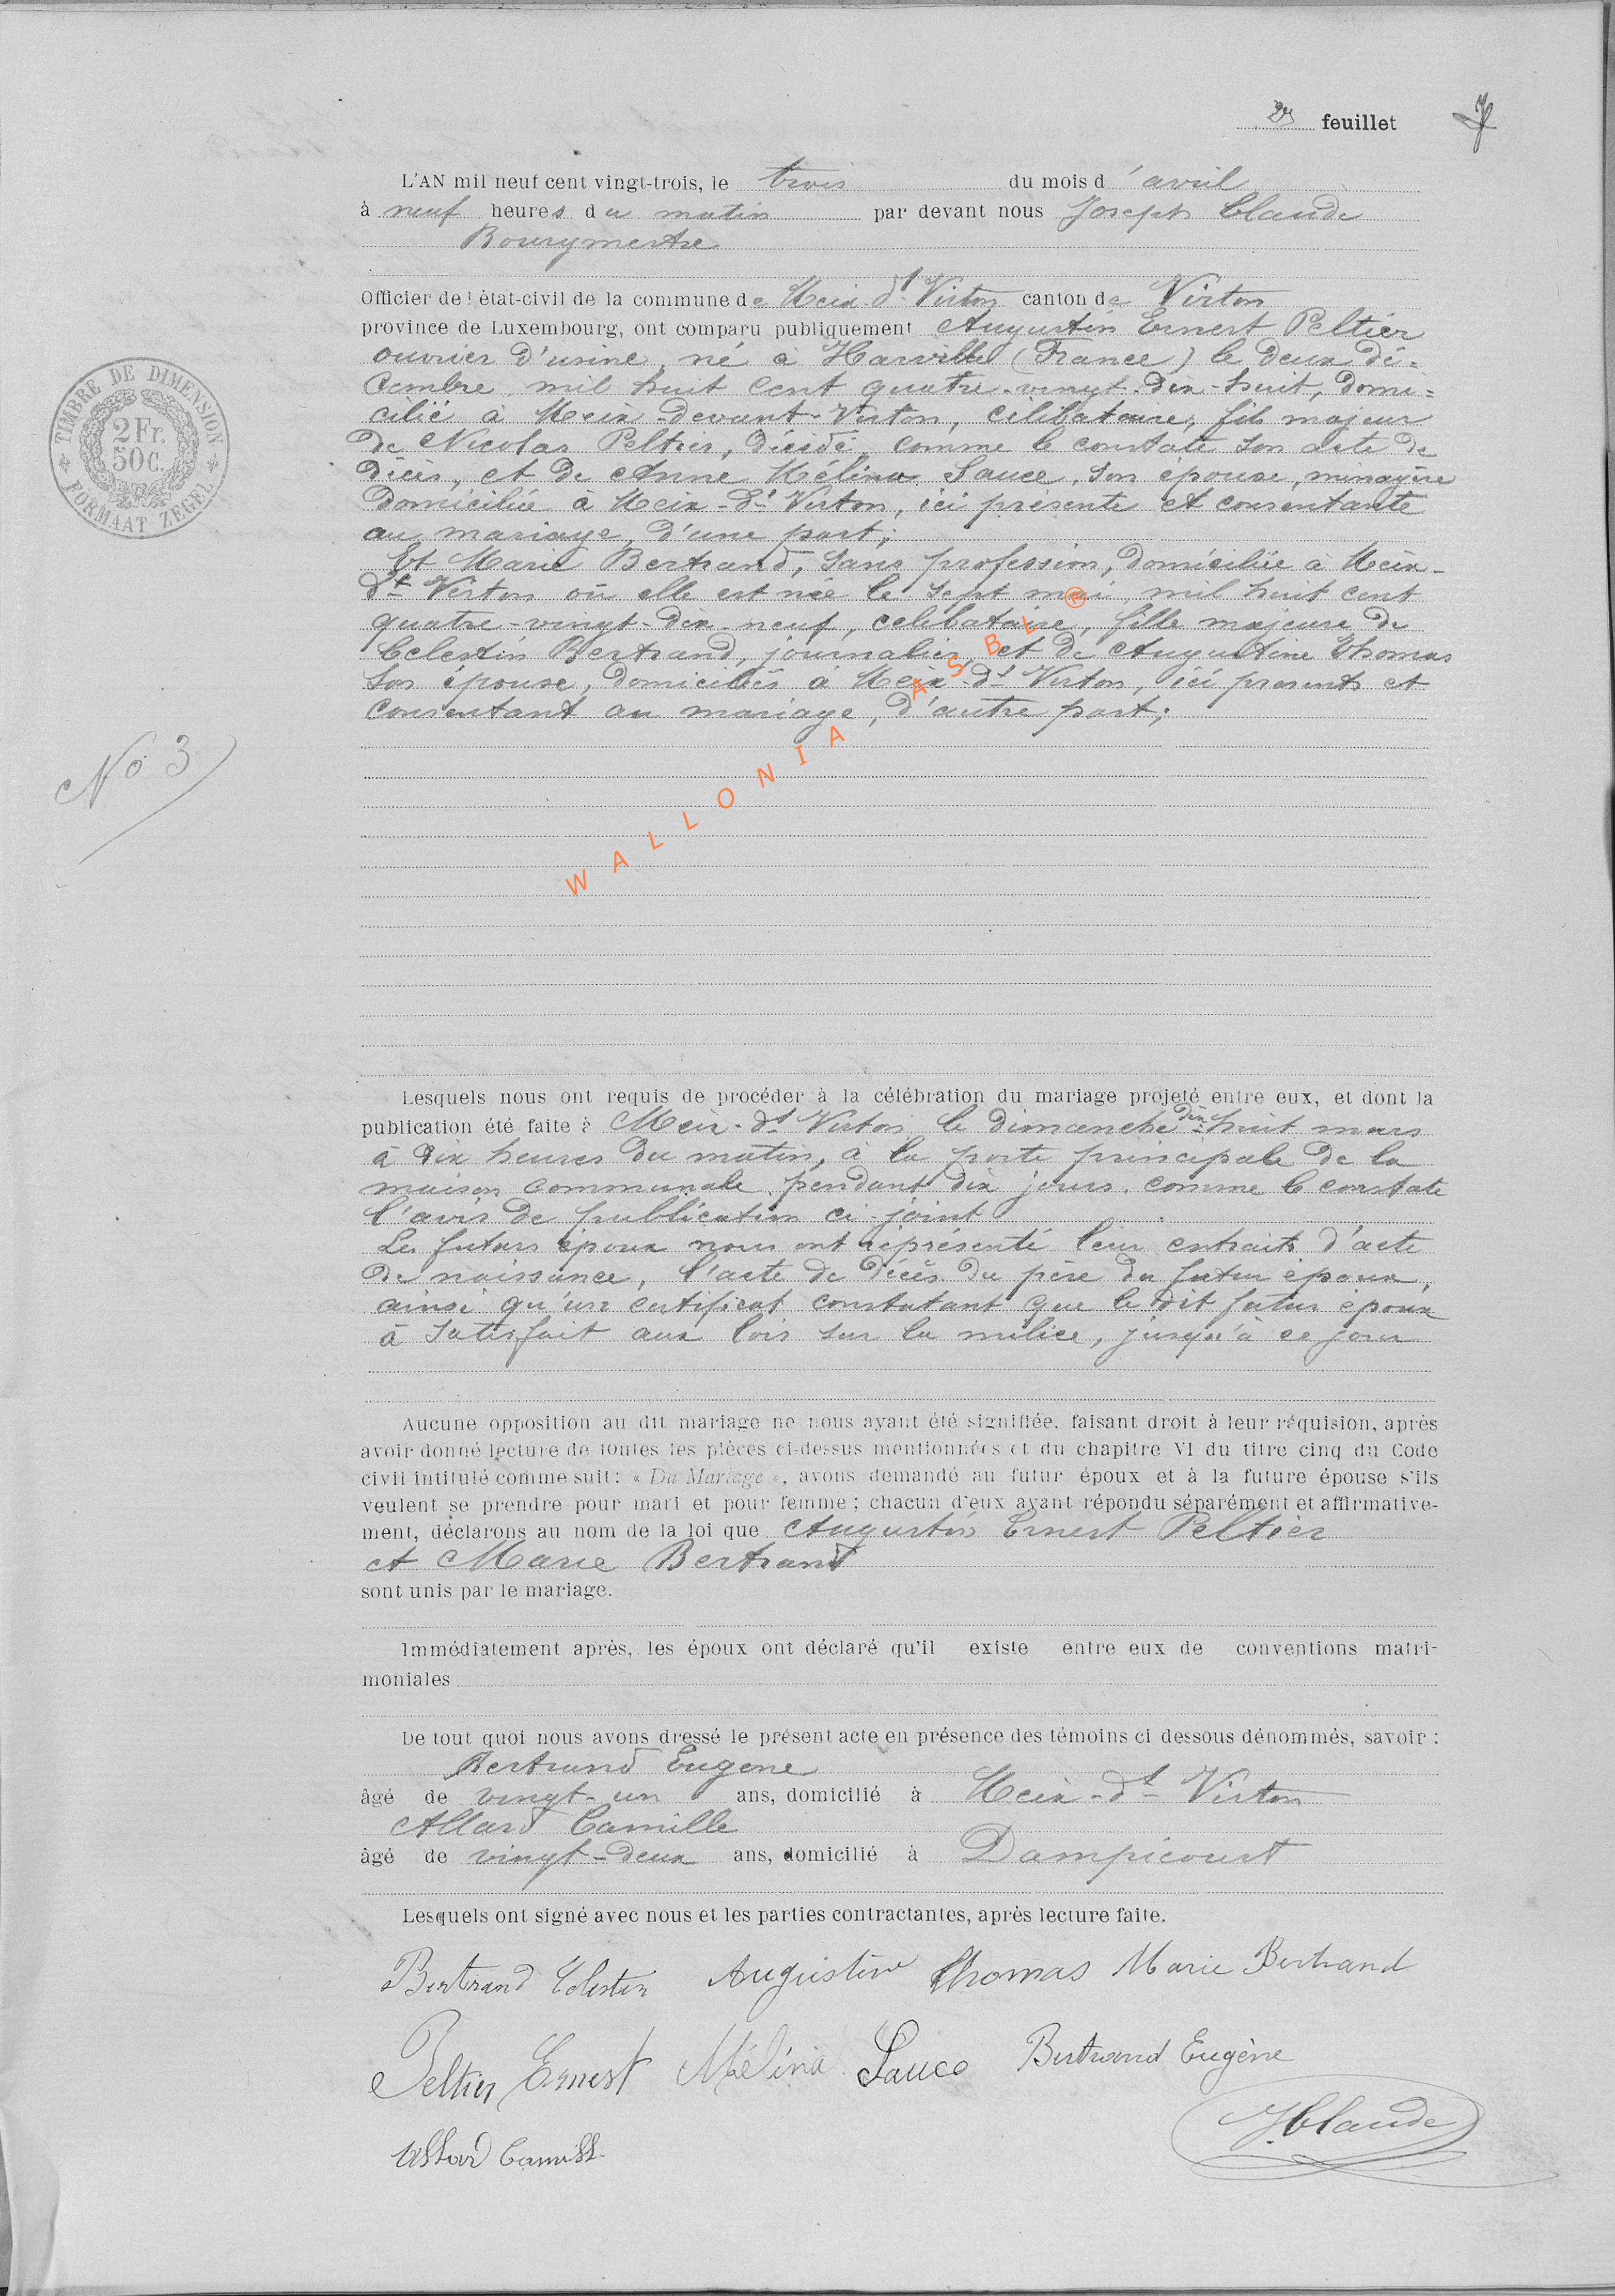 2e feuillet
L'AN mil neuf cent vingt-trois, le trois du mois d'avril
à neuf heures du matin par devant nous Joseph Claude
Bourgmestre
Officier de l'état-civil de la commune de Meix-dt-Virton canton de Virton
province de Luxembourg, ont comparu publiquement Augustin Ernest Peltier
ouvrier d'usine, né à Harville (France) le deux dé=
cembre mil huit cent quatre-vingt-dix-huit, domi=
cilié à Meix-devant-Virton, célibataire, fils majeur
de Nicolas Peltier, décédé comme le constate son acte de
décès, et de Anne Mélina Sauce, son épouse, ménagère
domiciliée à Meix-dt-Virton, ici présente et consentante
au mariage, d'une part;
Et Marie Bertrand, sans profession, domiciliée à Meix-
dt Virton où elle est née le sept mai mil huit cent
quatre-vingt-dix-neuf, célibataire, fille majeure de
Celestin Bertrand, journalier et de Augustine Thomas
son épouse, domiciliés à Meix-dt-Virton, ici présents et
consentant au mariage, d'autre part;
TIMBRE DE DIMENSION
2 Fr.
50 C.
FORMAAT ZEGEL
No 3
WALLONIA ASBL ®
Lesquels nous ont requis de procéder à la célébration du mariage projeté entre eux, et dont la
publication été faite à Meix-dt Virton le dimanche dix-huit mars
à dix heures du matin, à la porte principale de la
maison communale pendant dix jours. comme le constate
l'avis de publication ci-joint
Les futurs époux nous ont représenté leur extraits d'acte
de naissance, l'acte de décès du père du futur époux,
ainsi qu'un certificat constatant que le dit futur époux
à satisfait aux lois sur la milice, jusqu'à ce jour
Aucune opposition au dit mariage ne nous ayant été signifiée, faisant droit à leur réquision, après
avoir donné lecture de toutes les pièces ci-dessus mentionnées et du chapitre VI du titre cinq du Code
civil intitulé comme suit: « Du Mariage », avons demandé au futur époux et à la future épouse s'ils
veulent se prendre pour mari et pour femme; chacun d'eux ayant répondu séparément et affirmative-
ment, déclarons au nom de la loi que Augustin Ernest Peltier
et Marie Bertrand
sont unis par le mariage.
Immédiatement après, les époux ont déclaré qu'il existe entre eux de conventions matri-
moniales
De tout quoi nous avons dressé le présent acte en présence des témoins ci dessous dénommés, savoir :
Bertrand Eugene
âgé de vingt-un ans, domicilié à Meix-dt-Virton
Allard Camille
âgé de vingt-deux ans, domicilié à Dampicourt
Lesquels ont signé avec nous et les parties contractantes, après lecture faite.
Bertrand Celestin Augustine Thomas Marie Bertrand
Peltier Ernest Mélina Sauce Bertrand Eugène
J. Claude
Allard Camille